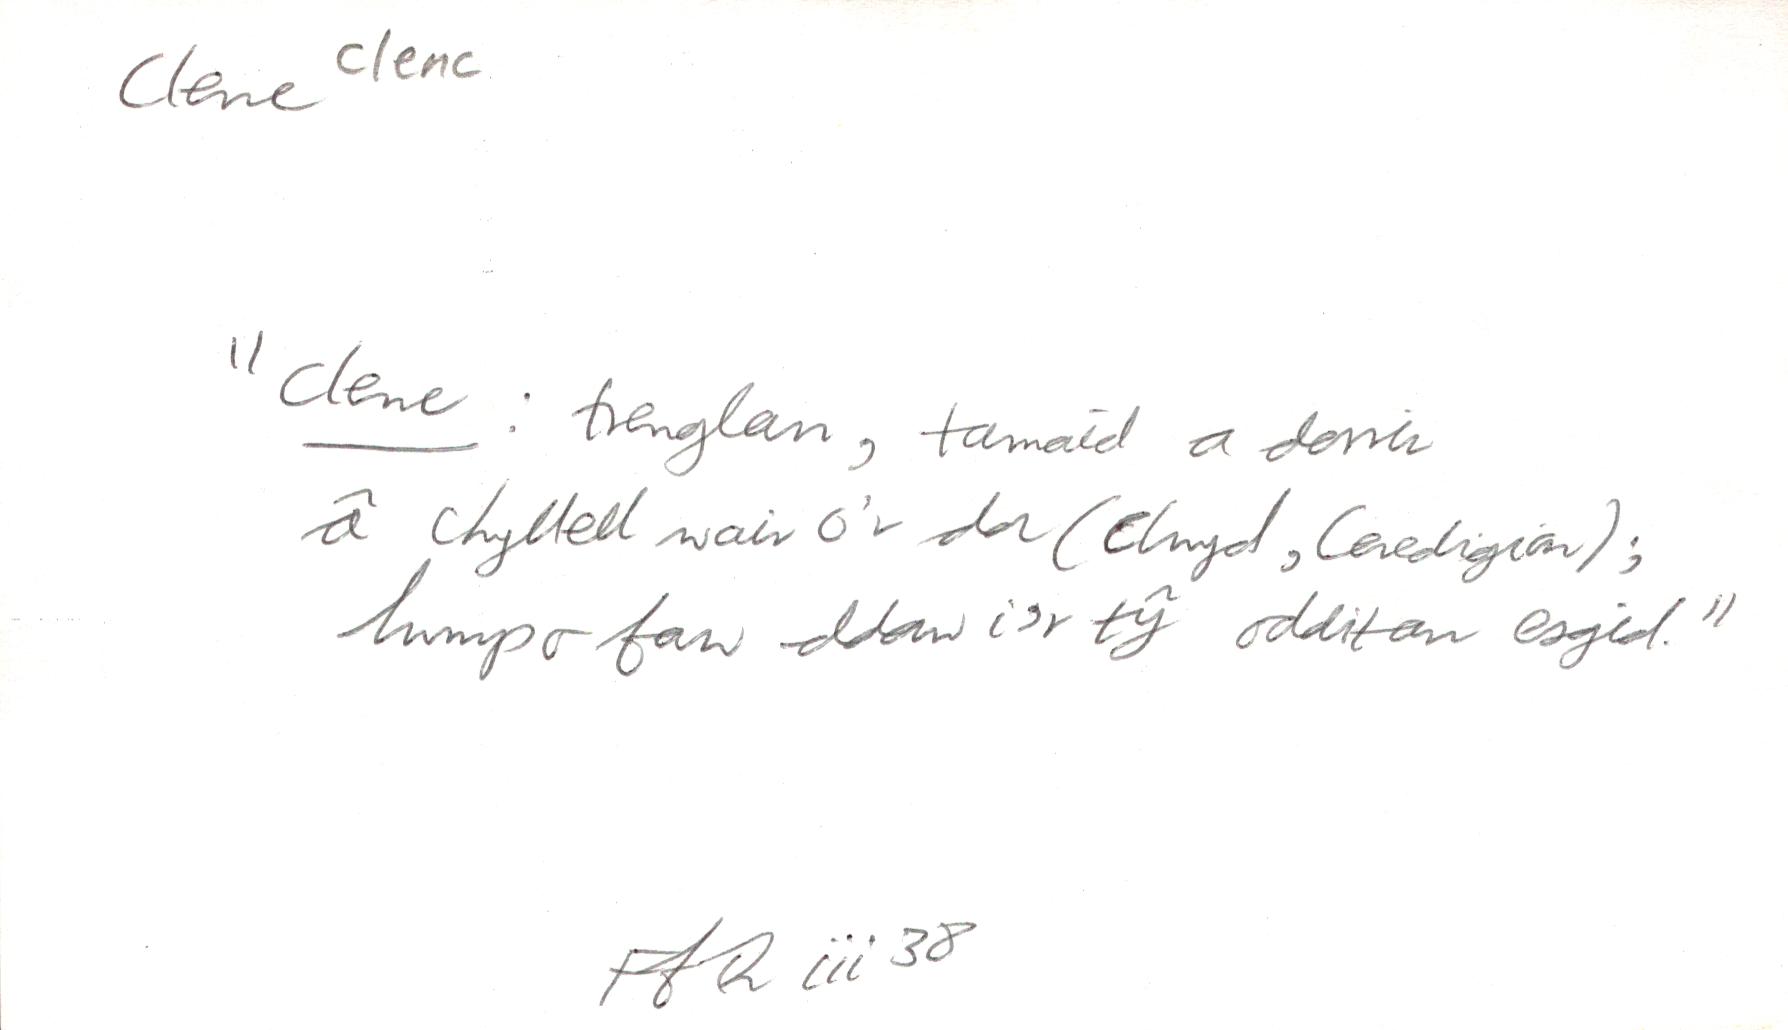 Clenc clenc
"Clenc : trenglan, tamaid a dorrir
â chyllell wair o'r das (Clwyd, Ceredigion);
lwmp o faw ddaw i'r tŷ odditan esgid."
FfR iii 38